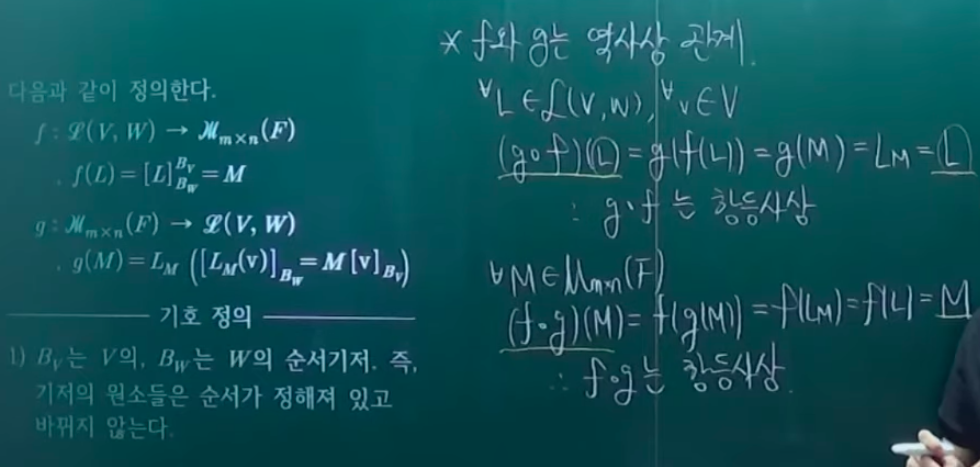 다음과 같이 정의한다.
f : ℒ(V, W) → ℳₘₓₙ(F)
. f(L) = [L]^{B_V}_{B_W} = M
g : ℳₘₓₙ(F) → ℒ(V, W)
. g(M) = L_M ([L_M(v)]_{B_W} = M[v]_{B_V})
기호 정의
1) B_V는 V의, B_W는 W의 순서기저. 즉,
기저의 원소들은 순서가 정해져 있고
바뀌지 않는다.
* f와 g는 역사상 관계.
∀L ∈ ℒ(V, W), ∀v ∈ V
(g∘f)(L) = g(f(L)) = g(M) = L_M = L
∴ g∘f 는 항등사상
∀M ∈ Mₘₓₙ(F)
(f∘g)(M) = f(g(M)) = f(L_M) = f(L) = M
∴ f∘g는 항등사상.